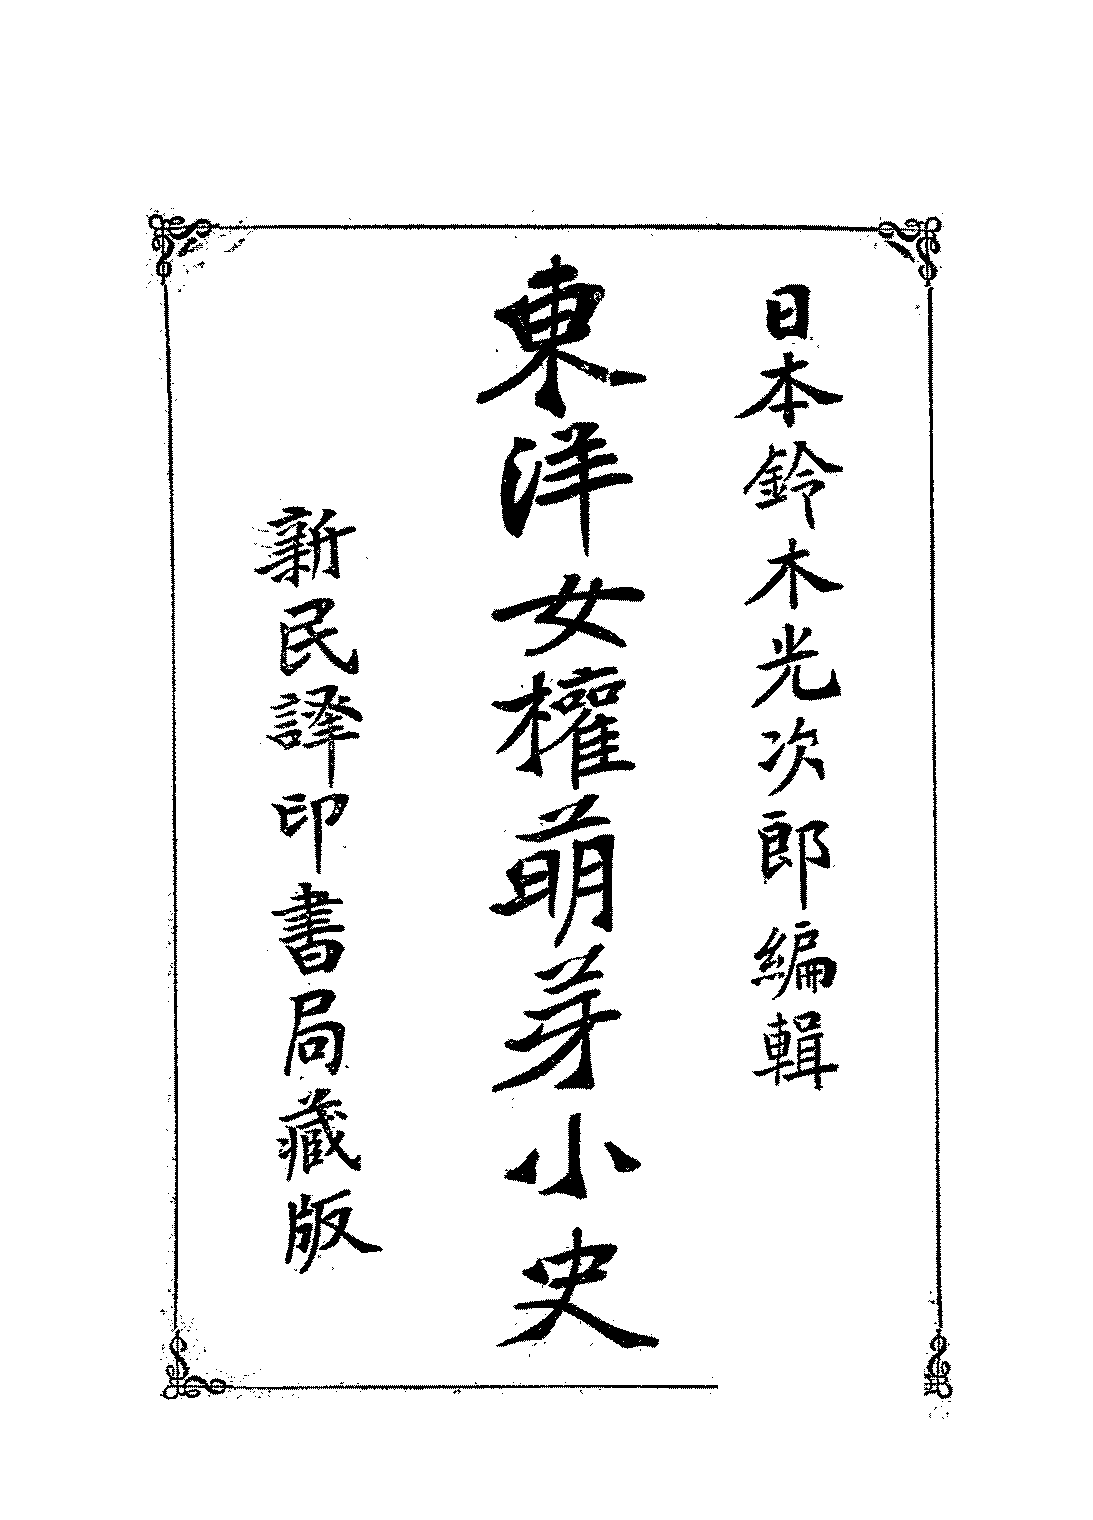 日本鈴木光次郎編輯
東洋女權萌芽小史
新民譯印書局藏版